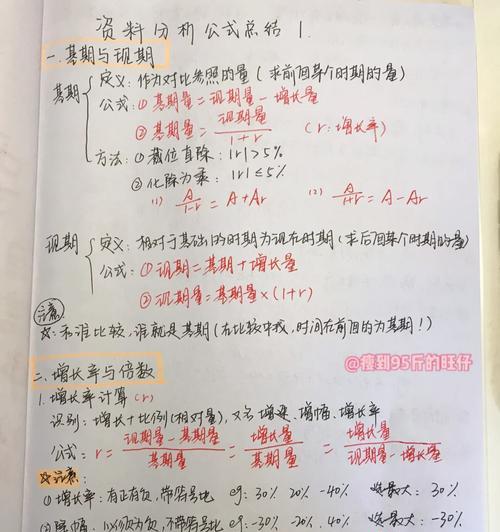 资料分析公式总结 1.
一.基期与现期
基期
定义:作为对比参照的量(求前面某个时期的量)
公式:① 基期量=现期量-增长量
② 基期量= 现期量/1+r (r:增长率)
方法:① 截位直除:|r|>5%
② 化除为乘:|r|≤5%
(1) A/1-r = A+Ar (2) A/1+r = A-Ar
现期
定义:相对于基础的时期为现在时期(求后面某个时期的量)
公式:① 现期=基期+增长量
② 现期量=基期量×(1+r)
注意
☆:和谁比较,谁就是基期(在比较中找,时间在前面的为基期!)
@瘦到95斤的旺仔
二、增长率与倍数
1.增长率计算(r)
识别:增长+比例(相对量),又名增速、增幅、增长率
公式:r= 现期量-基期量/基期量 = 增长量/基期量 = 增长量/现期量-增长量
☆注意:
① 增长率:有正有负,带符号比 eg:30% 20% -40% 最大:30%
eg:-30% 20% -